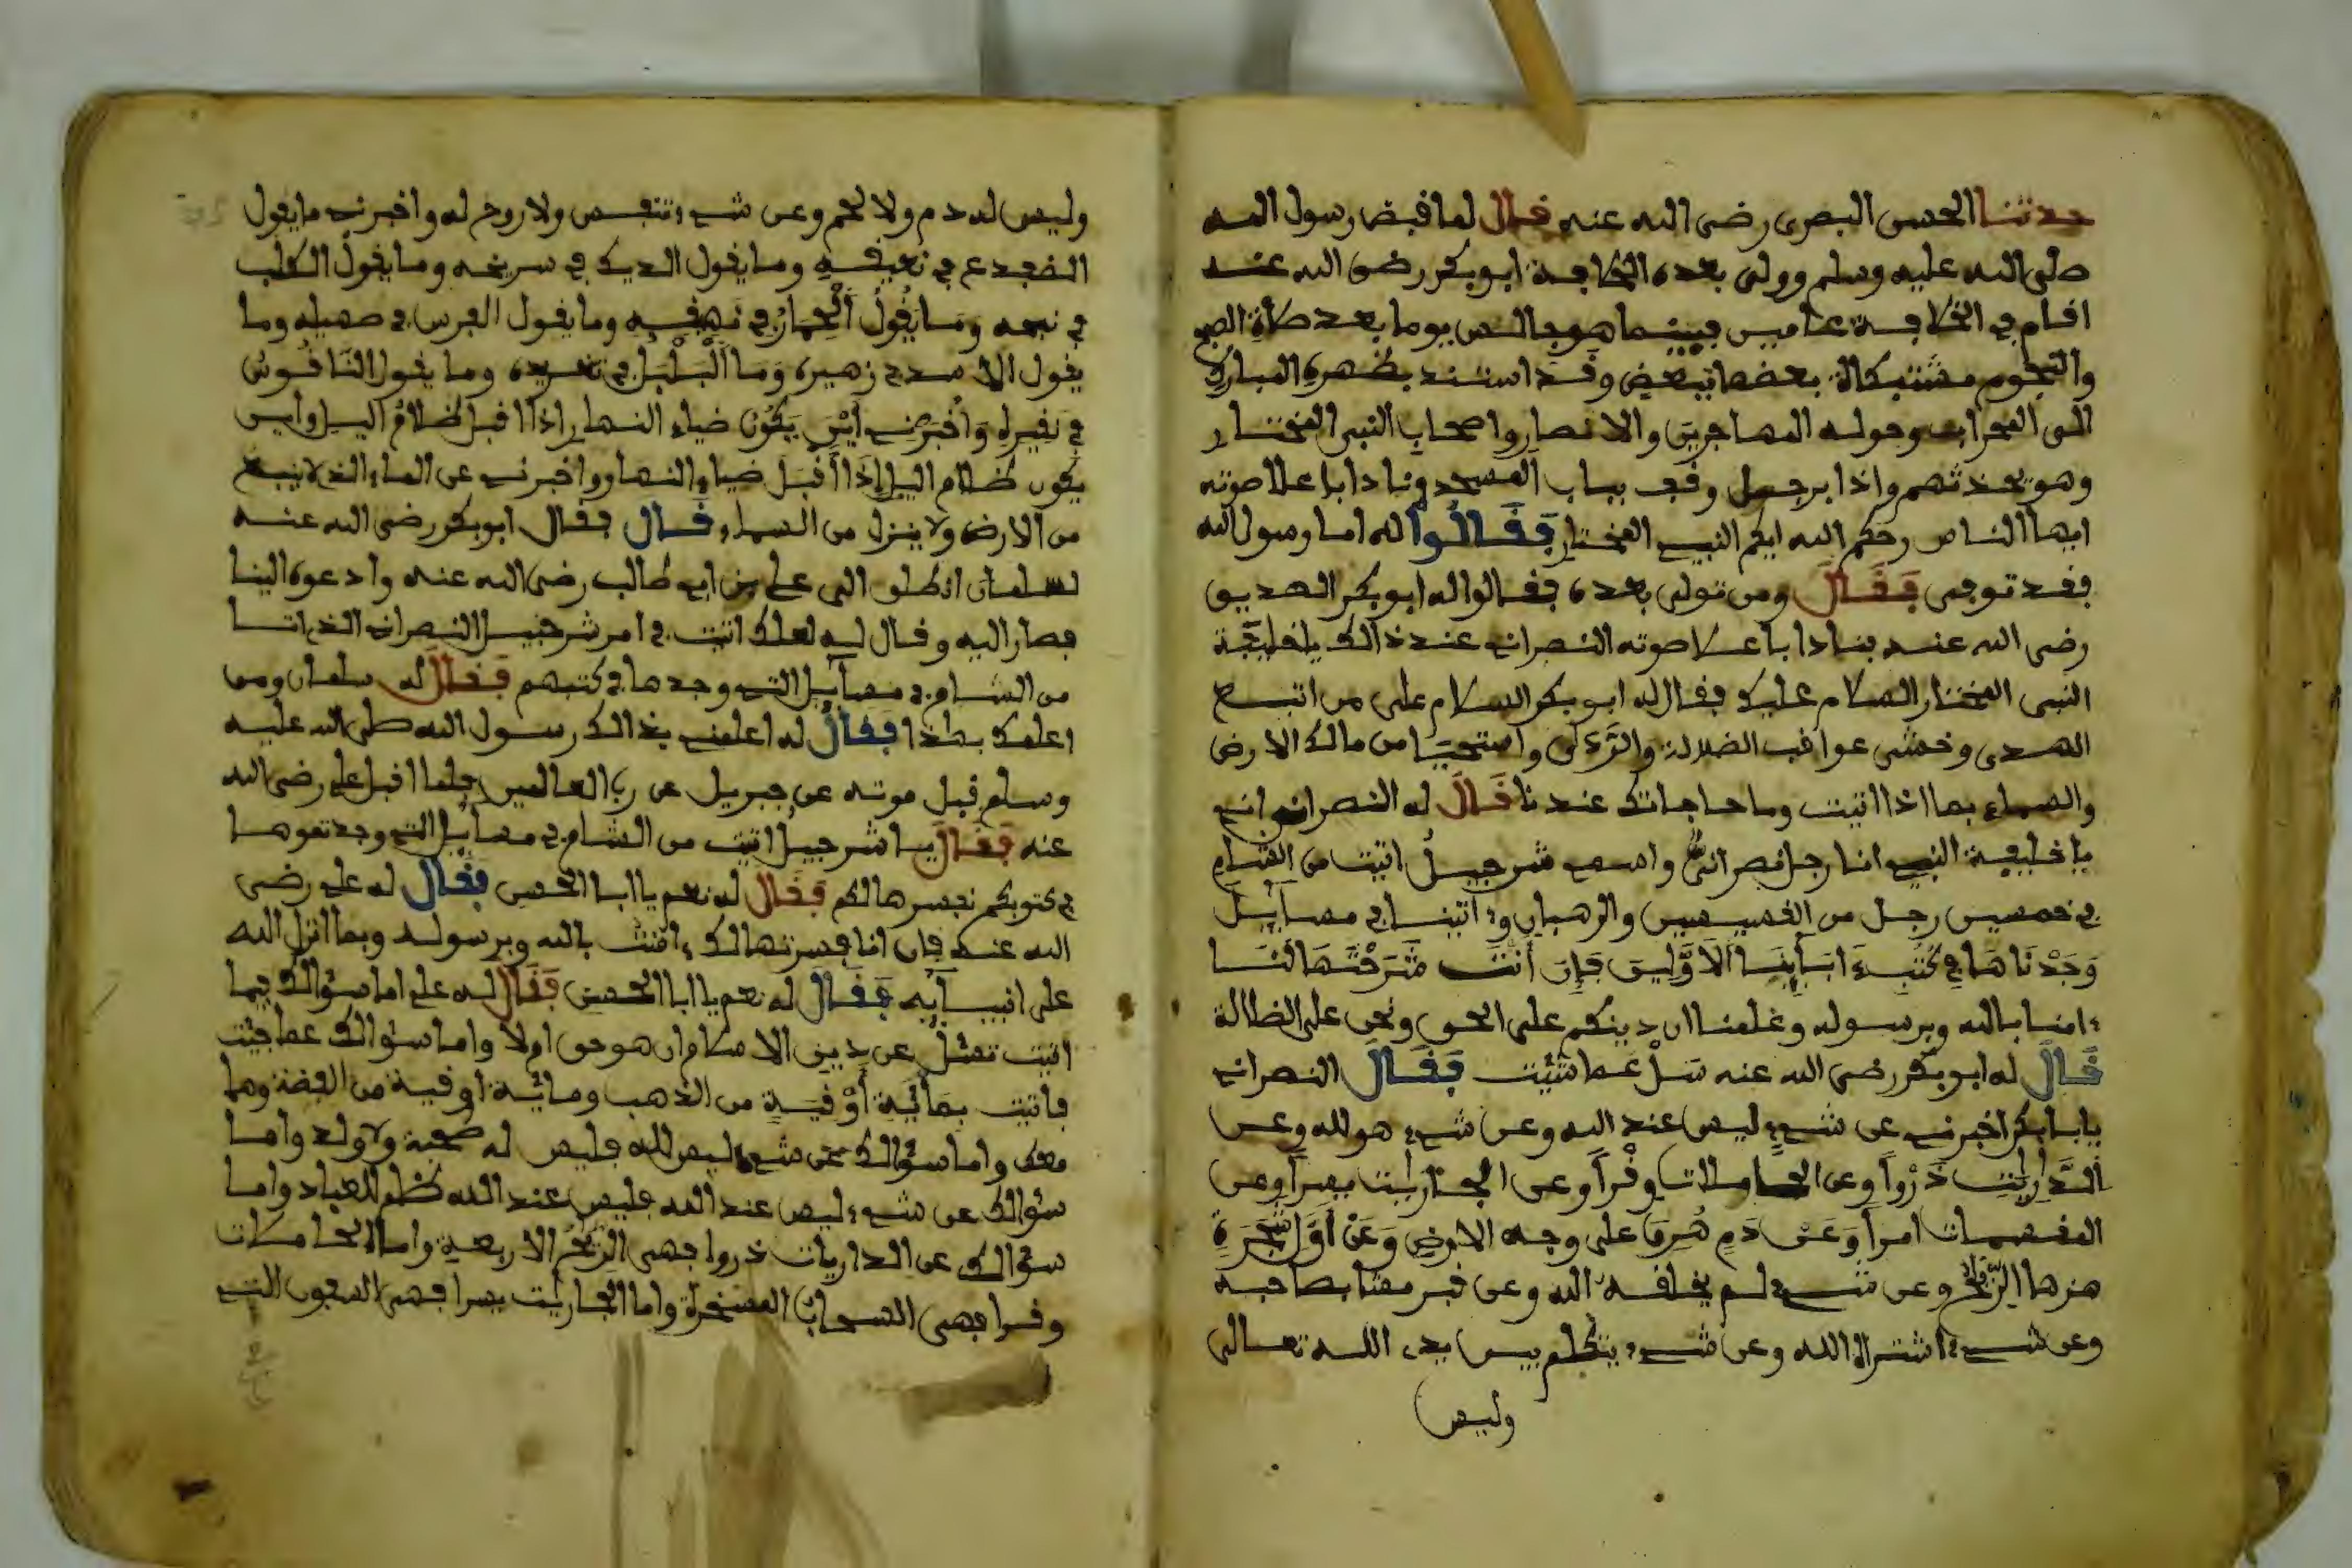 حدثنا الحسن البصري رضي الله عنه قال لما قبض رسول الله
صلى الله عليه وسلم وولى بعده الخلافة ابو بكر رضي الله عنه
اقام في الخلافة عامين فبينما هو جالس يوما بعد صلاة الصبح
والنجوم مشتبكاة بعضها ببعض وقد استند بظهره المبارك
الى المحراب وحوله المهاجرين والانصار واصحاب النبي المختار
وهو يحدثهم واذا برجل وقف بباب المسجد ونادا باعلا صوته
ايها الناس رحكم الله ايكم النبي المختار فقالوا له اما رسول الله
فقد توفى فقال ومن تولى بعده فقالوا له ابو بكر الصديق
رضي الله عنه بنادا باعلا صوته النصراني عند ذالك يا خليفة
النبي المختار السلام عليك فقال له ابو بكر السلام على من اتبع
الهدى وخشى عواقب الضلالة والردى واستحيا من مالك الارض
والسماء بما اذا اتيت وما حاجاتك عندنا قال له النصراني اني
يا خليفة النبي انا رجل نصراني واسمي شرجيل اتيت من الشام
في خمسين رجل من القسيسين والرهبان واتينا في مسايل
وَجَدْنَاهَا فِي كُتُبِ ءَابَآئِنَا الَاوَّلِينَ فَإِن أَنْتَ شَرَحْتَهَا لَنَا
ءامنا بالله وبرسوله وعلمنا ان دينكم على الحق ونحن على الضالة
قَالَ له ابو بكر رضي الله عنه سَلْ عَما شَئِيت فَقَالَ النصراني
يابا بكر اخبرني عن شيء ليس عند الله وعن شيء هو لله وعن
الذَّارِيَتِ ذَرْواً وعن الحاملات وِقْراً وعن الجاريت يسراً وعن
المقسمات امراً وَعَنْ دَمٍ هُرِقَ على وجه الارض وَعَنْ أَوَّلِ شَجَرَةٍ
هزها الرِّيح وعن شيء لم يخلقه الله وعن قبر مشا بصاحبه
وعن شيء اشتراه الله وعن شيء يتكلم بين يدي الله تعالى
وليس
وليس له دم ولا لحم وعن شيء تنفس ولا روح له واخبرني ما يقول
الضفدع في نعيقه وما يقول الديك في سريخه وما يقول الكلب
في نبحه وَمَا يَقُولُ الْحِمَارُ فِي نَهِيقِهِ وما يقول الفرس في صهيله وما
يقول الاسد في زهيره وَمَا الْبَلْبَلُ في تغريده وما يقول النَاقُوسُ
في نقيره وَأَخْبِرْنِي أَيْنَ يَكُونُ ضياء النهار اذا اقبل ظلامُ اليل واين
يكون ظلام اليل إذَا أَقْبَلَ ضياء النهار واخبرني عن الماء الذي لا ينبع
من الارض ولا ينزل من السماء قال فقال ابو بكر رضي الله عنه
لسلمان انطلق الى علي بن ابي طالب رضي الله عنه وادعوه الينا
فصار اليه وقال له لعلك اتيت في امر شرجيل النصراني الذي اتا
من الشام في مسآيل التي وجدها في كتبهم فَقَالَ له سلمان ومن
اعلمك بهاذا فَقَالَ له اعلمني بذالك رسول الله صلى الله عليه
وسلم قبل موته عن جبريل عن رب العالمين فلما اقبل علي رضي الله
عنه فَقَالَ يا شرجيل اتيت من الشام في مسآيل التي وجدتموها
في كتوبكم نفسرها لكم فَقَالَ له نعم يا ابا الحسن فَقَال له علي رضي
الله عنه فان انا فسرتها لك ءامنت بالله وبرسوله وبما انزل الله
على انبيآيه فَقَالَ له نعم يا ابا الحسن فَقَالَ له علي اما سؤالك فيما
اتيت تسئل عن دين الاسلام ان هو حق ام لا واما سؤالك عما جيئت
فأتيت بمأئية أوْقِيَةٍ من الذهب ومائية اوقية من الفضة وهما
معك واما سؤالك عن شيء ليس لله فليس له صحبة ولا ولد واما
سؤالك عن شيء ليس عند الله فليس عند الله ظلم للعباد واما
سؤالك عن الداريات ذروا فهي الريح الاربعة واما الحاملات
وقرا فهي السحاب المسخرة واما الجاريت يسرا فهي السفون التي